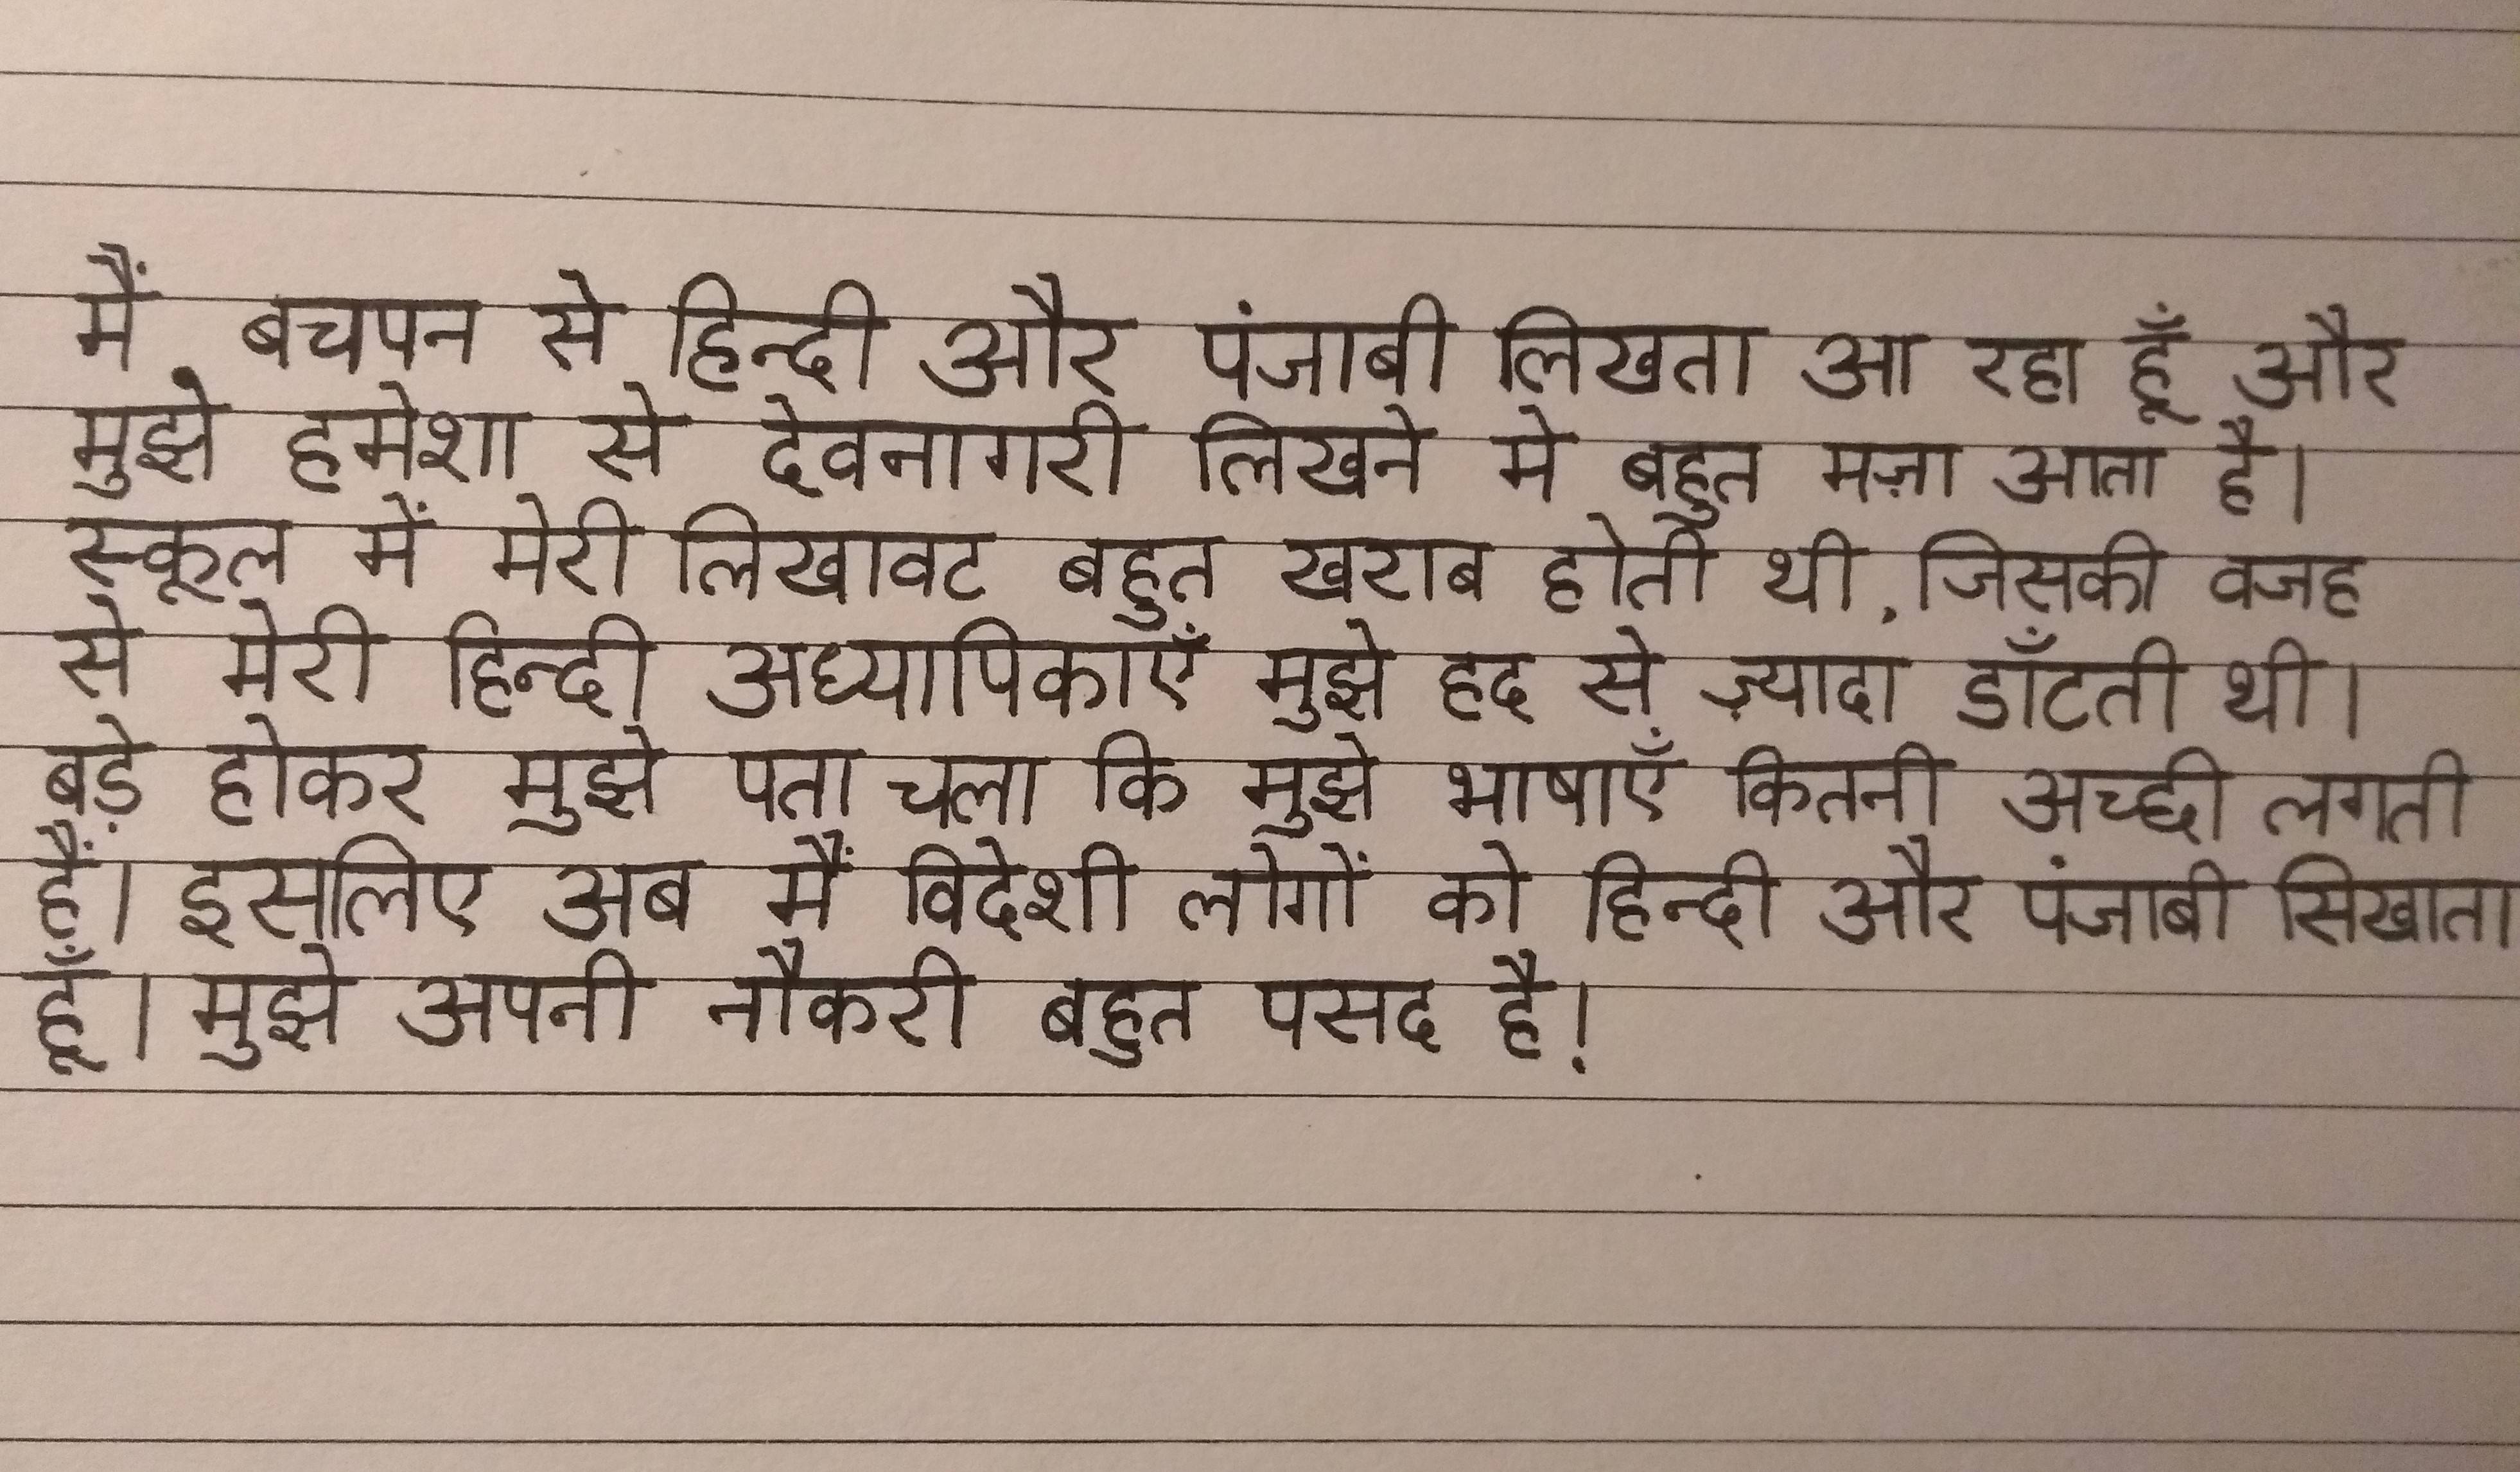 मैं बचपन से हिन्दी और पंजाबी लिखता आ रहा हूँ और
मुझे हमेशा से देवनागरी लिखने मे बहुत मज़ा आता है।
स्कूल में मेरी लिखावट बहुत खराब होती थी, जिसकी वजह
से मेरी हिन्दी अध्यापिकाएँ मुझे हद से ज़्यादा डाँटती थी।
बड़े होकर मुझे पता चला कि मुझे भाषाएँ कितनी अच्छी लगती
हैं। इसलिए अब मैं विदेशी लोगों को हिन्दी और पंजाबी सिखाता
हूँ। मुझे अपनी नौकरी बहुत पसद है!